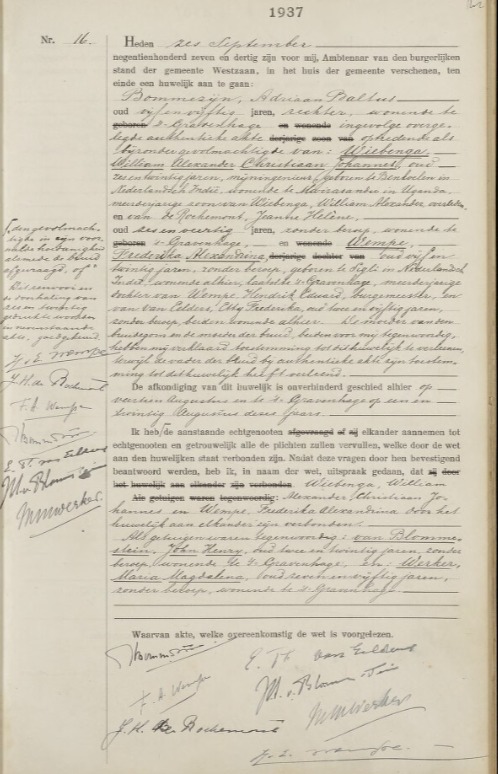 1937
Nr. 16.
Heden zes September
negentienhonderd zeven en dertig zijn voor mij, Ambtenaar van den burgerlijken
stand der gemeente Westzaan, in het huis der gemeente verschenen, ten
einde een huwelijk aan te gaan:
Bommezijn, Adriaan Baltus
oud vijf en vijftig jaren, rechter, wonende te
geboren 's-Gravenhage en wonende ingevolge overge-
legde authentieke akte derjarige zoon van optredende als
bijzonder gevolmachtigde van: Wiebenga,
William Alexander Christiaan Johannes, oud
zes en twintig jaren, mijningenieur, geboren te Benkoelen in
Nederlandsch Indië, wonende te in Uganda,
meerderjarige zoon van Wiebenga, William Alexander, overleden,
en van de Rochemont, Jeanne Helène,
oud zes en veertig jaren, zonder beroep, wonende te
geboren 's-Gravenhage, en wonende Wempe,
Frederika Alexandrina, derjarige dochter van oud vijf en
twintig jaren, zonder beroep, geboren te Sigli in Nederlandsch
Indië, wonende alhier, laatst te 's-Gravenhage, meerderjarige
dochter van Wempe, Hendrik Eduard, burgemeester, en
van van Eelders, Otty Frederika, oud twee en vijftig jaren,
zonder beroep, beiden wonende alhier. De moeder van den
bruidegom en de moeder der bruid, beiden voor mij tegenwoordig,
hebben mij verklaard toestemming tot dit huwelijk te verleenen,
terwijl de vader der bruid bij authentieke akte zijn toestem-
ming tot dit huwelijk heeft verleend.
De afkondiging van dit huwelijk is onverhinderd geschied alhier op
veertien Augustus en te 's-Gravenhage op een en
twintig Augustus dezes jaars.
Ik heb de aanstaande echtgenooten afgevraagd of zij elkander aannemen tot
echtgenooten en getrouwelijk alle de plichten zullen vervullen, welke door de wet
aan den huwelijken staat verbonden zijn. Nadat deze vragen door hen bevestigend
beantwoord werden, heb ik, in naam der wet, uitspraak gedaan, dat zij door
het huwelijk aan elkander zijn verbonden Wiebenga, William
Als getuigen waren tegenwoordig: Alexander Christiaan Jo-
hannes en Wempe, Frederika Alexandrina door het
huwelijk aan elkander zijn verbonden.
Als getuigen waren tegenwoordig: van Blomme-
stein, John Henry, oud twee en twintig jaren, zonder
beroep, wonende te 's-Gravenhage, en: Werker,
Maria Magdalena, oud zeven en vijftig jaren,
zonder beroep, wonende te 's-Gravenhage.
Waarvan akte, welke overeenkomstig de wet is voorgelezen.
F. A. Wempe
J. H. de Rochemont
M Werker
den gevolmach-
tigde in zijn voor-
melde hoedanigheid
alsmede de bruid
afgevraagd, of
F. A. Wempe